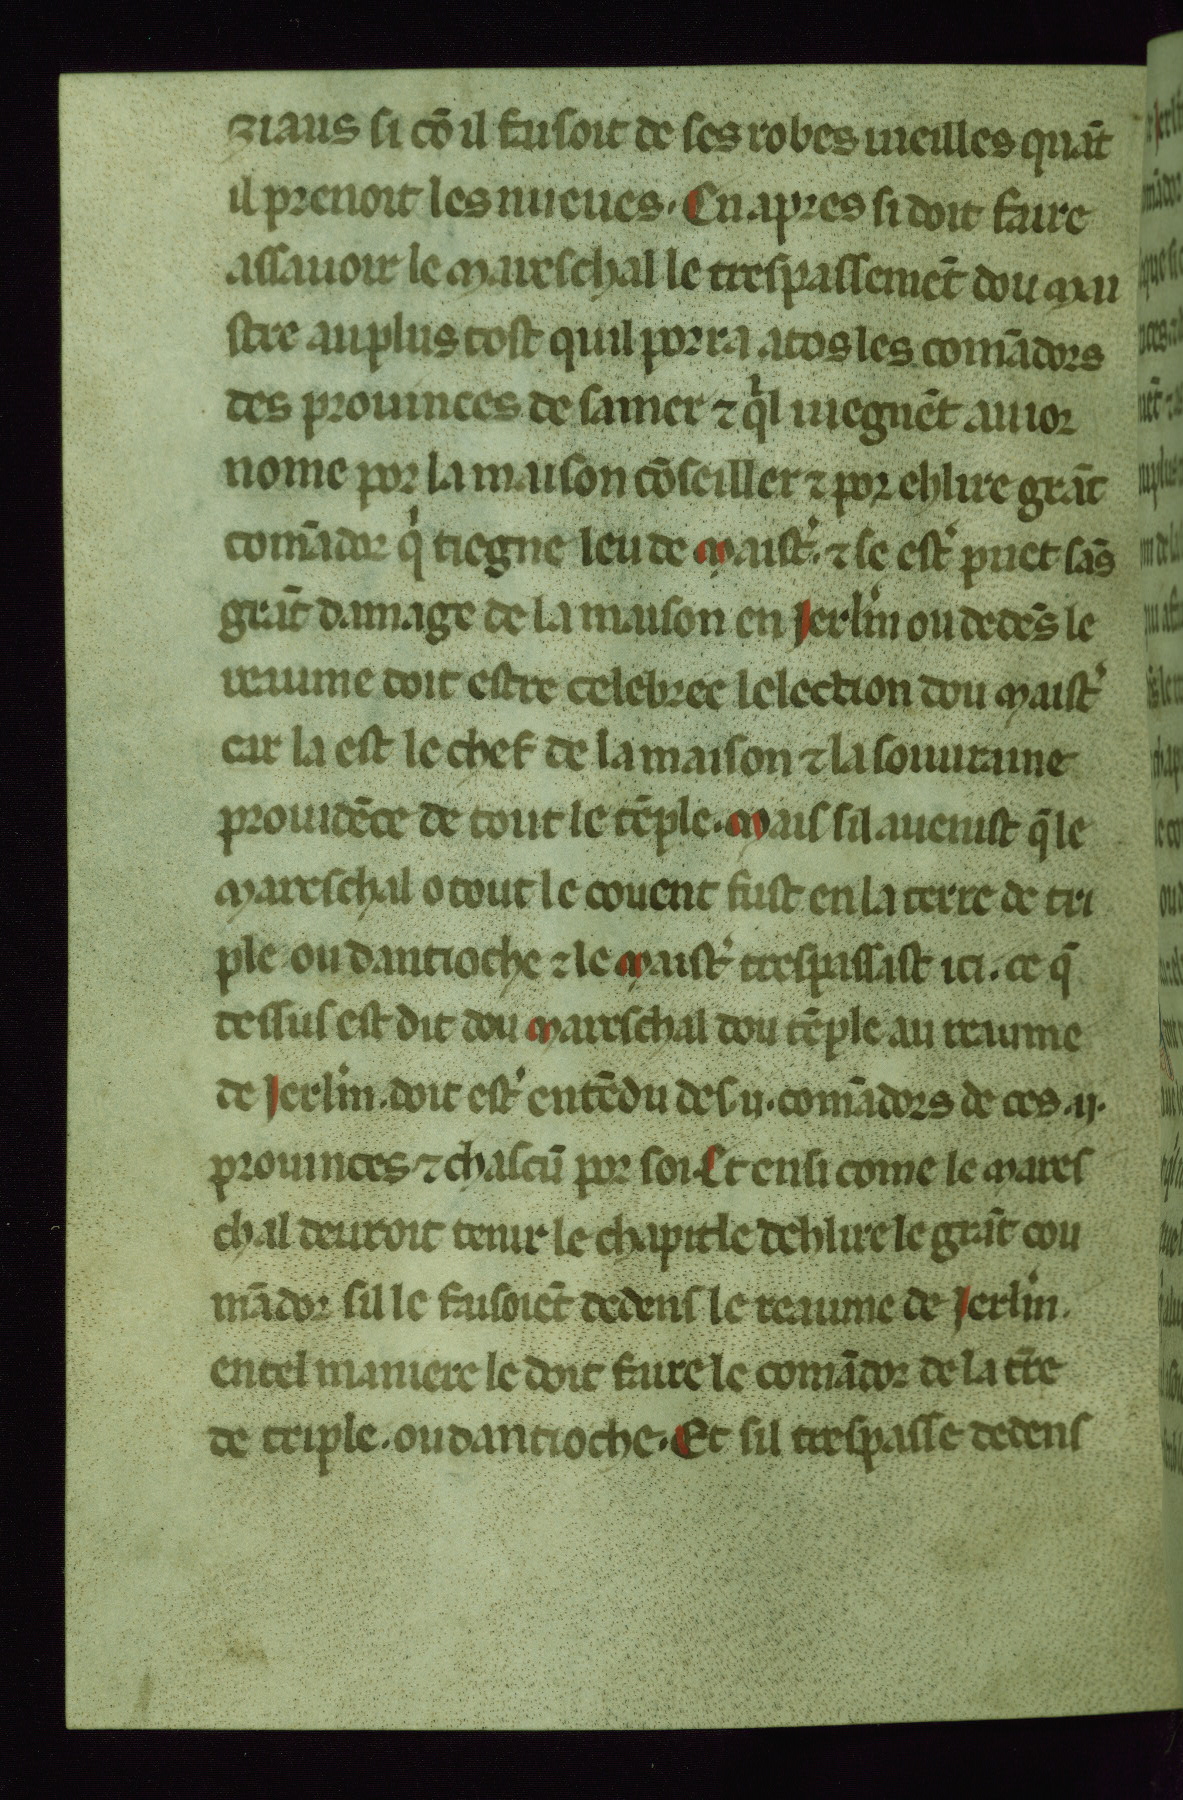 ziaus si cõ il faisoit de ses robes uieilles quãt
il prenoit les nueues. En apres si doit faire
assauoir le mareschal le trespassemẽt dou mai
stre au plus tost quil porra a tos les comãdors
des prouinces de samer ⁊ qͥl uiegnẽt a iuor
nome por la maison cõseiller ⁊ por ehlire grãt
comãdor qͥ tiegne leu de maist᷑. ⁊ se est᷑ puet sãs
grãt damage de la maison en Jerlm̃ ou dedẽs le
reaume doit estre celebree lelection dou maist᷑
car la est le chef de la maison ⁊ la souuraine
prouidẽce de tout le tẽple. Mais sil auenist q̃ le
mareschal o tout le couent fust en la terre de tri
ple ou dantioche ⁊ le maist᷑ trespassast ici. ce q̃
dessus est dit dou mareschal dou tẽple au reaume
de Jerlm̃. doit est᷑ entẽdu des .ij. comãdors de ces .ij.
prouinces ⁊ chascũ por soi. Et ensi come le mares
chal deuroit tenir le chapitle dehlire le grãt cou
mãdor sil le faisoiẽt dedens le reaume de Jerlm̃.
en tel maniere le doit faire le comãdor de la tr̃e
de triple. ou dantioche. Et sil trespasse dedens